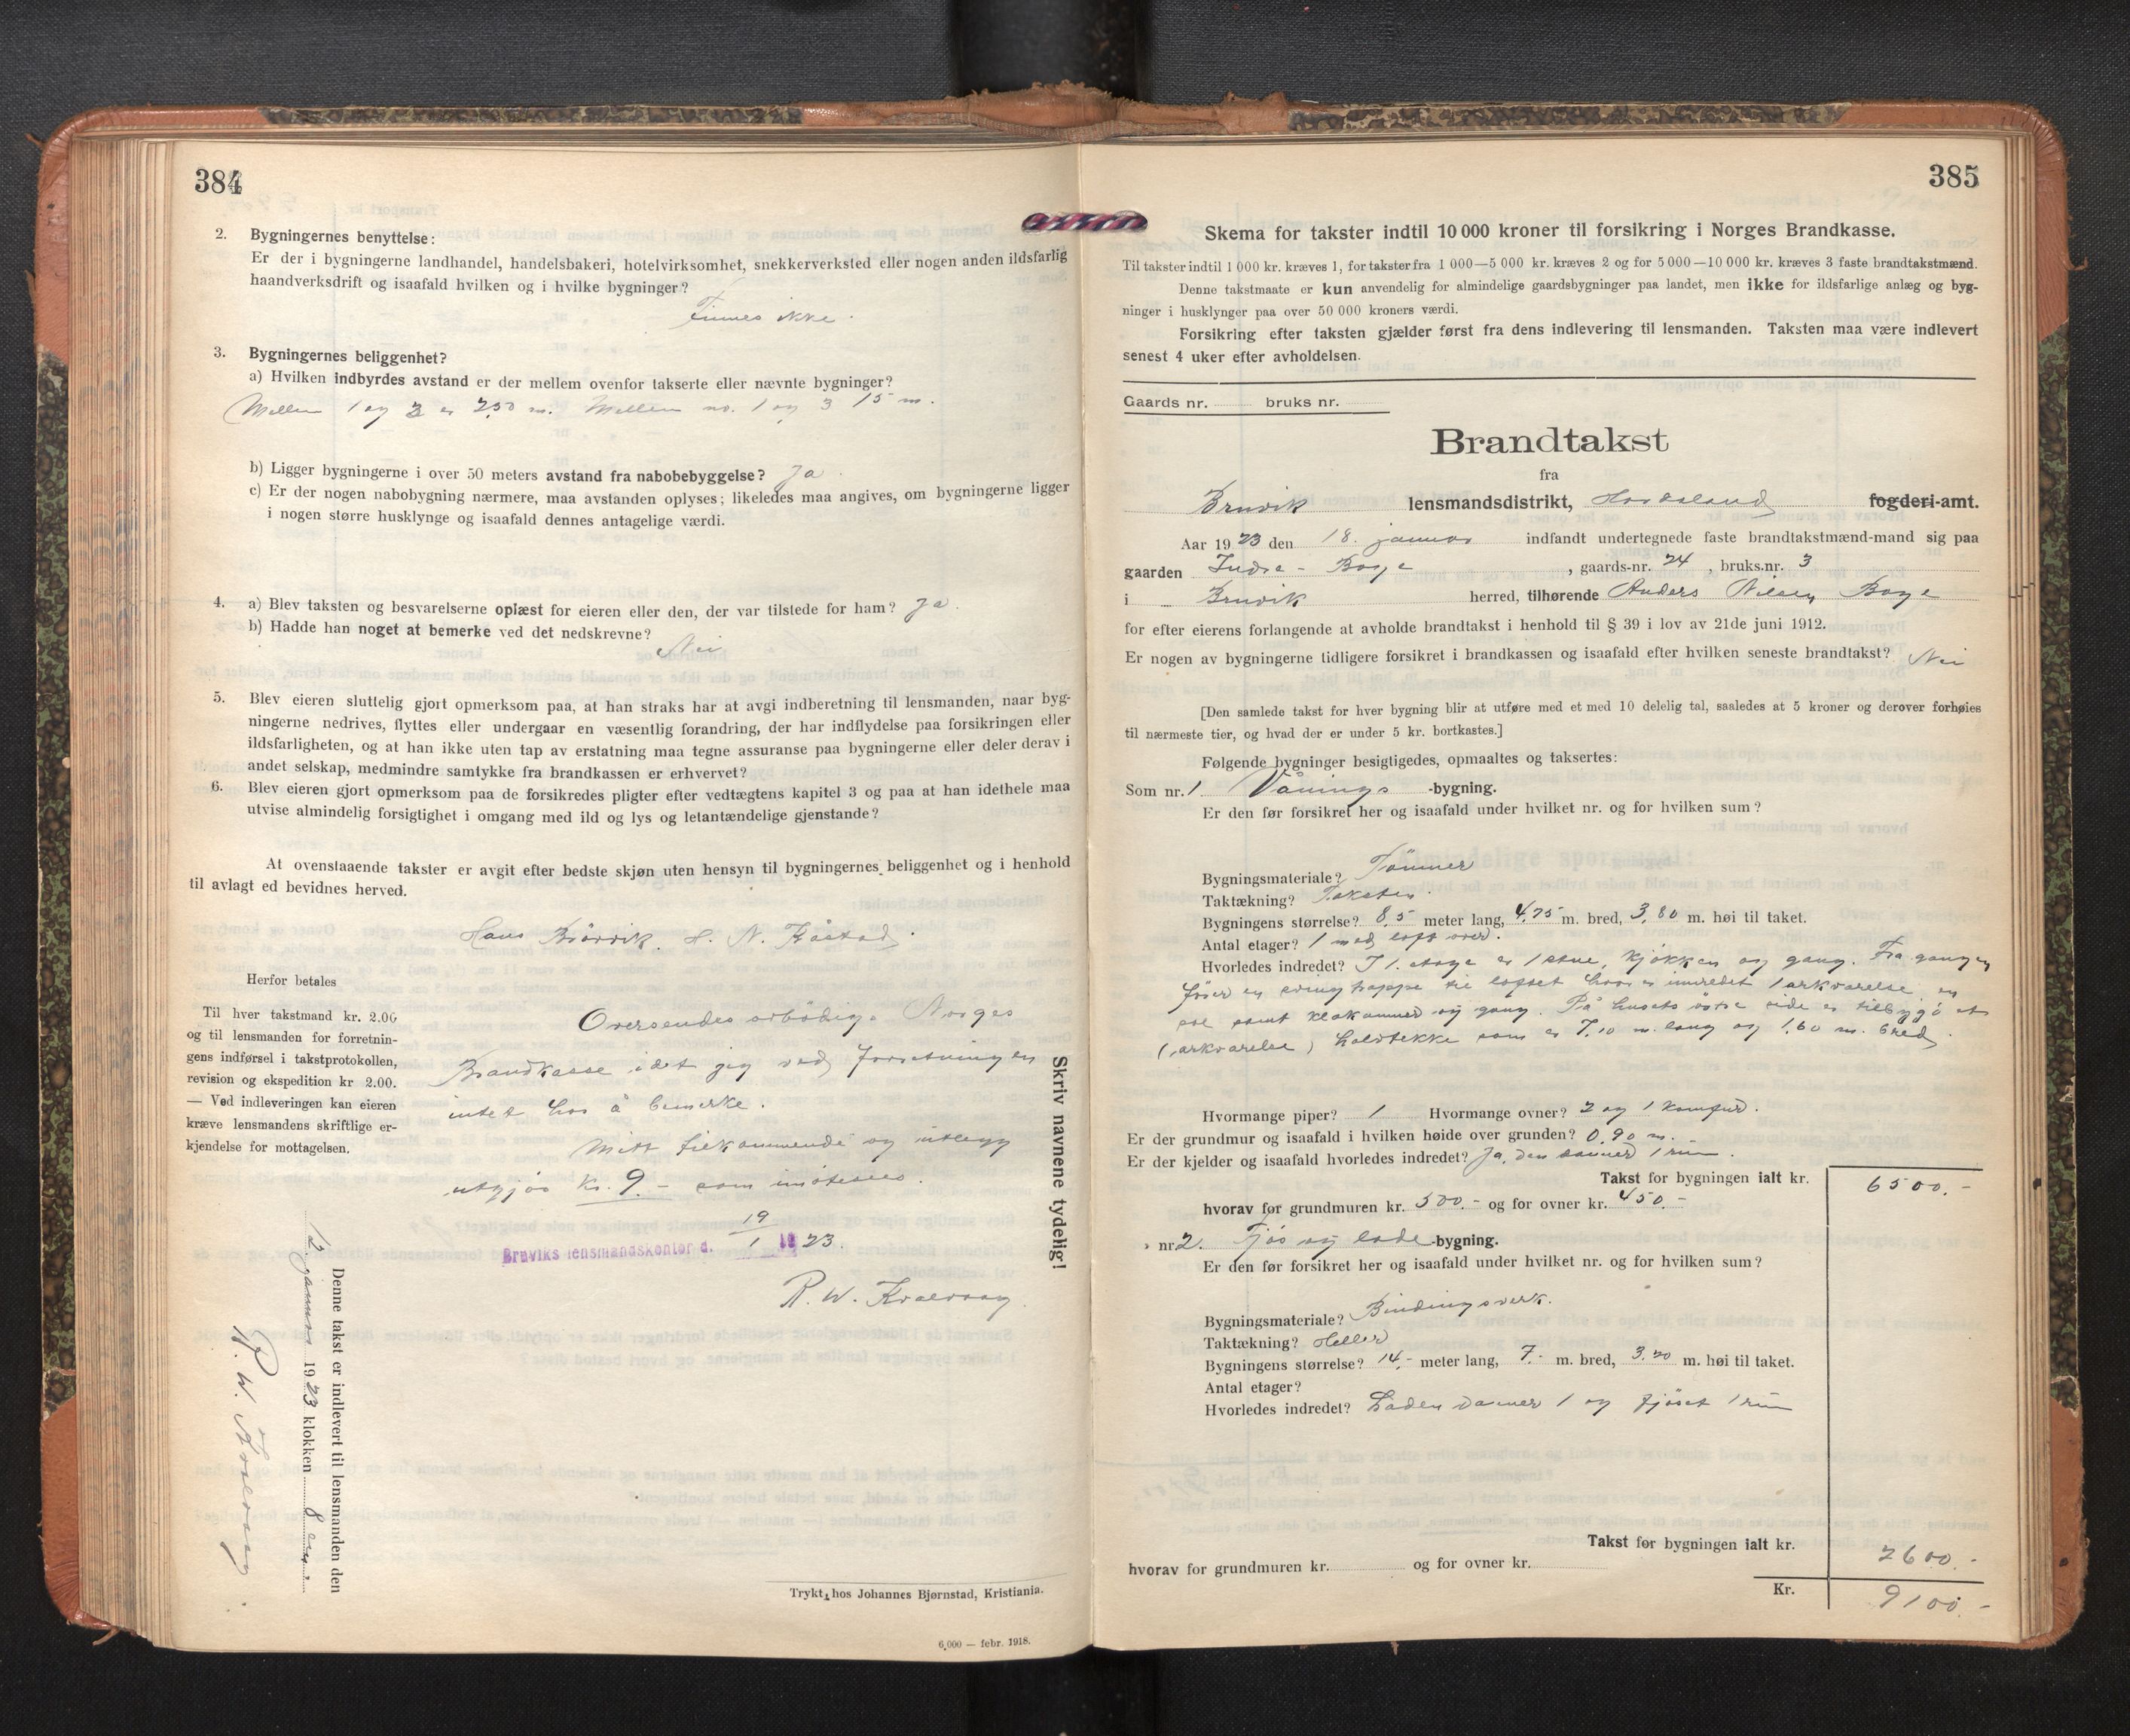 384
2. Bygningernes benyttelse:
Er der i bygningerne landhandel, handelsbakeri, hotelvirksomhet, snekkerverksted eller nogen anden ildsfarlig
haandverksdrift og isaafald hvilken og i hvilke bygninger?
Finnes ikke.
3. Bygningernes beliggenhet?
a) Hvilken indbyrdes avstand er der mellem ovenfor takserte eller nævnte bygninger?
Mellem 1 og 2 er 2,50 m. Mellem no. 1 og 3 15 m.
b) Ligger bygningerne i over 50 meters avstand fra nabobebyggelse? Ja.
c) Er der nogen nabobygning nærmere, maa avstanden oplyses; likeledes maa angives, om bygningerne ligger
i nogen større husklynge og isaafald dennes antagelige værdi.
4. a) Blev taksten og besvarelserne oplæst for eieren eller den, der var tilstede for ham? Ja.
b) Hadde han noget at bemerke ved det nedskrevne?
Nei
5. Blev eieren sluttelig gjort opmerksom paa, at han straks har at avgi indberetning til lensmanden, naar byg-
ningerne nedrives, flyttes eller undergaar en væsentlig forandring, der har indflydelse paa forsikringen eller
ildsfarligheten, og at han ikke uten tap av erstatning maa tegne assuranse paa bygningerne eller deler derav i
andet selskap, medmindre samtykke fra brandkassen er erhvervet?
6. Blev eieren gjort opmerksom paa de forsikredes pligter efter vedtægtens kapitel 3 og paa at han idethele maa
utvise almindelig forsigtighet i omgang med ild og lys og letantændelige gjenstande?
At ovenstaaende takster er avgit efter bedste skjøn uten hensyn til bygningernes beliggenhet og i henhold
til avlagt ed bevidnes herved.
Hans H. N.
Herfor betales
Til hver takstmand kr. 2.00
og til lensmanden for forretnin-
gens indførsel i takstprotokollen,
revision og ekspedition kr 2.00.
— Ved indleveringen kan eieren
kræve lensmandens skriftlige er-
kjendelse for mottagelsen.
Oversendes ærbødigst Norges
Brandkasse idet jeg ved forretningen
intet har å bemerke.
Mitt tilkommende og utlegg
utgjør kr. 9.- som imøtesees.
Bruviks lensmandskontor d. 19/1 1923.
R. W.
Skriv navnene tydelig!
Denne takst er indlevert til lensmanden den
januar 1923 klokken 8 em.
R. W.
Trykt hos Johannes Bjørnstad, Kristiania.
6,000 — febr. 1918.
385
Skema for takster indtil 10 000 kroner til forsikring i Norges Brandkasse.
Til takster indtil 1 000 kr. kræves 1, for takster fra 1 000—5 000 kr. kræves 2 og for 5 000—10 000 kr. kræves 3 faste brandtakstmænd.
Denne takstmaate er kun anvendelig for almindelige gaardsbygninger paa landet, men ikke for ildsfarlige anlæg og byg-
ninger i husklynger paa over 50 000 kroners værdi.
Forsikring efter taksten gjælder først fra dens indlevering til lensmanden. Taksten maa være indlevert
senest 4 uker efter avholdelsen.
Gaards nr. bruks nr.
Brandtakst
fra
Bruvik lensmandsdistrikt, Hordaland fogderi-amt.
Aar 1923 den 18. januar indfandt undertegnede faste brandtakstmænd-mand sig paa
gaarden Indre - Boge, gaards-nr. 24, bruks.nr. 3
i Bruvik herred, tilhørende Anders Nilsen Boge
for efter eierens forlangende at avholde brandtakst i henhold til § 39 i lov av 21de juni 1912.
Er nogen av bygningerne tidligere forsikret i brandkassen og isaafald efter hvilken seneste brandtakst? Nei
[Den samlede takst for hver bygning blir at utføre med et med 10 delelig tal, saaledes at 5 kroner og derover forhøies
til nærmeste tier, og hvad der er under 5 kr. bortkastes.]
Følgende bygninger besigtigedes, opmaaltes og taksertes:
Som nr. 1 Vånings -bygning.
Er den før forsikret her og isaafald under hvilket nr. og for hvilken sum?
Bygningsmateriale? Tømmer
Taktækning? Taksten
Bygningens størrelse? 8,5 meter lang, 4,75 m. bred, 3,80 m. høi til taket.
Antal etager? 1 med loft over.
Hvorledes indredet? I 1. etage er 1 stue, kjøkken og gang. Fra gangen
fører en svingtrappe til loftet hvor er innredet 1 arkværelse, en
sal samt klækammer og gang. På husets østre side er tilbygd et
(arkværelse) halvtekke som er 7,10 m. lang og 1,60 m. bred.
Hvormange piper? 1 Hvormange ovner? 2 og 1 komfur.
Er der grundmur og isaafald i hvilken høide over grunden? 0,90 m.
Er der kjelder og isaafald hvorledes indredet? Ja, den danner 1 rum.
Takst for bygningen ialt kr. 6500.-
hvorav for grundmuren kr. 500.- og for ovner kr. 450.-
» nr. 2. Fjøs og løde -bygning.
Er den før forsikret her og isaafald under hvilket nr. og for hvilken sum?
Bygningsmateriale? Bindingsverk.
Taktækning? Heller
Bygningens størrelse? 14,- meter lang, 7,- m. bred, 3,20 m. høi til taket.
Antal etager?
Hvorledes indredet? Løden danner 1 og fjøset 1 rum
Takst for bygningen ialt kr. 2600.-
hvorav for grundmuren kr. og for ovner kr.
Kr. 9100.-